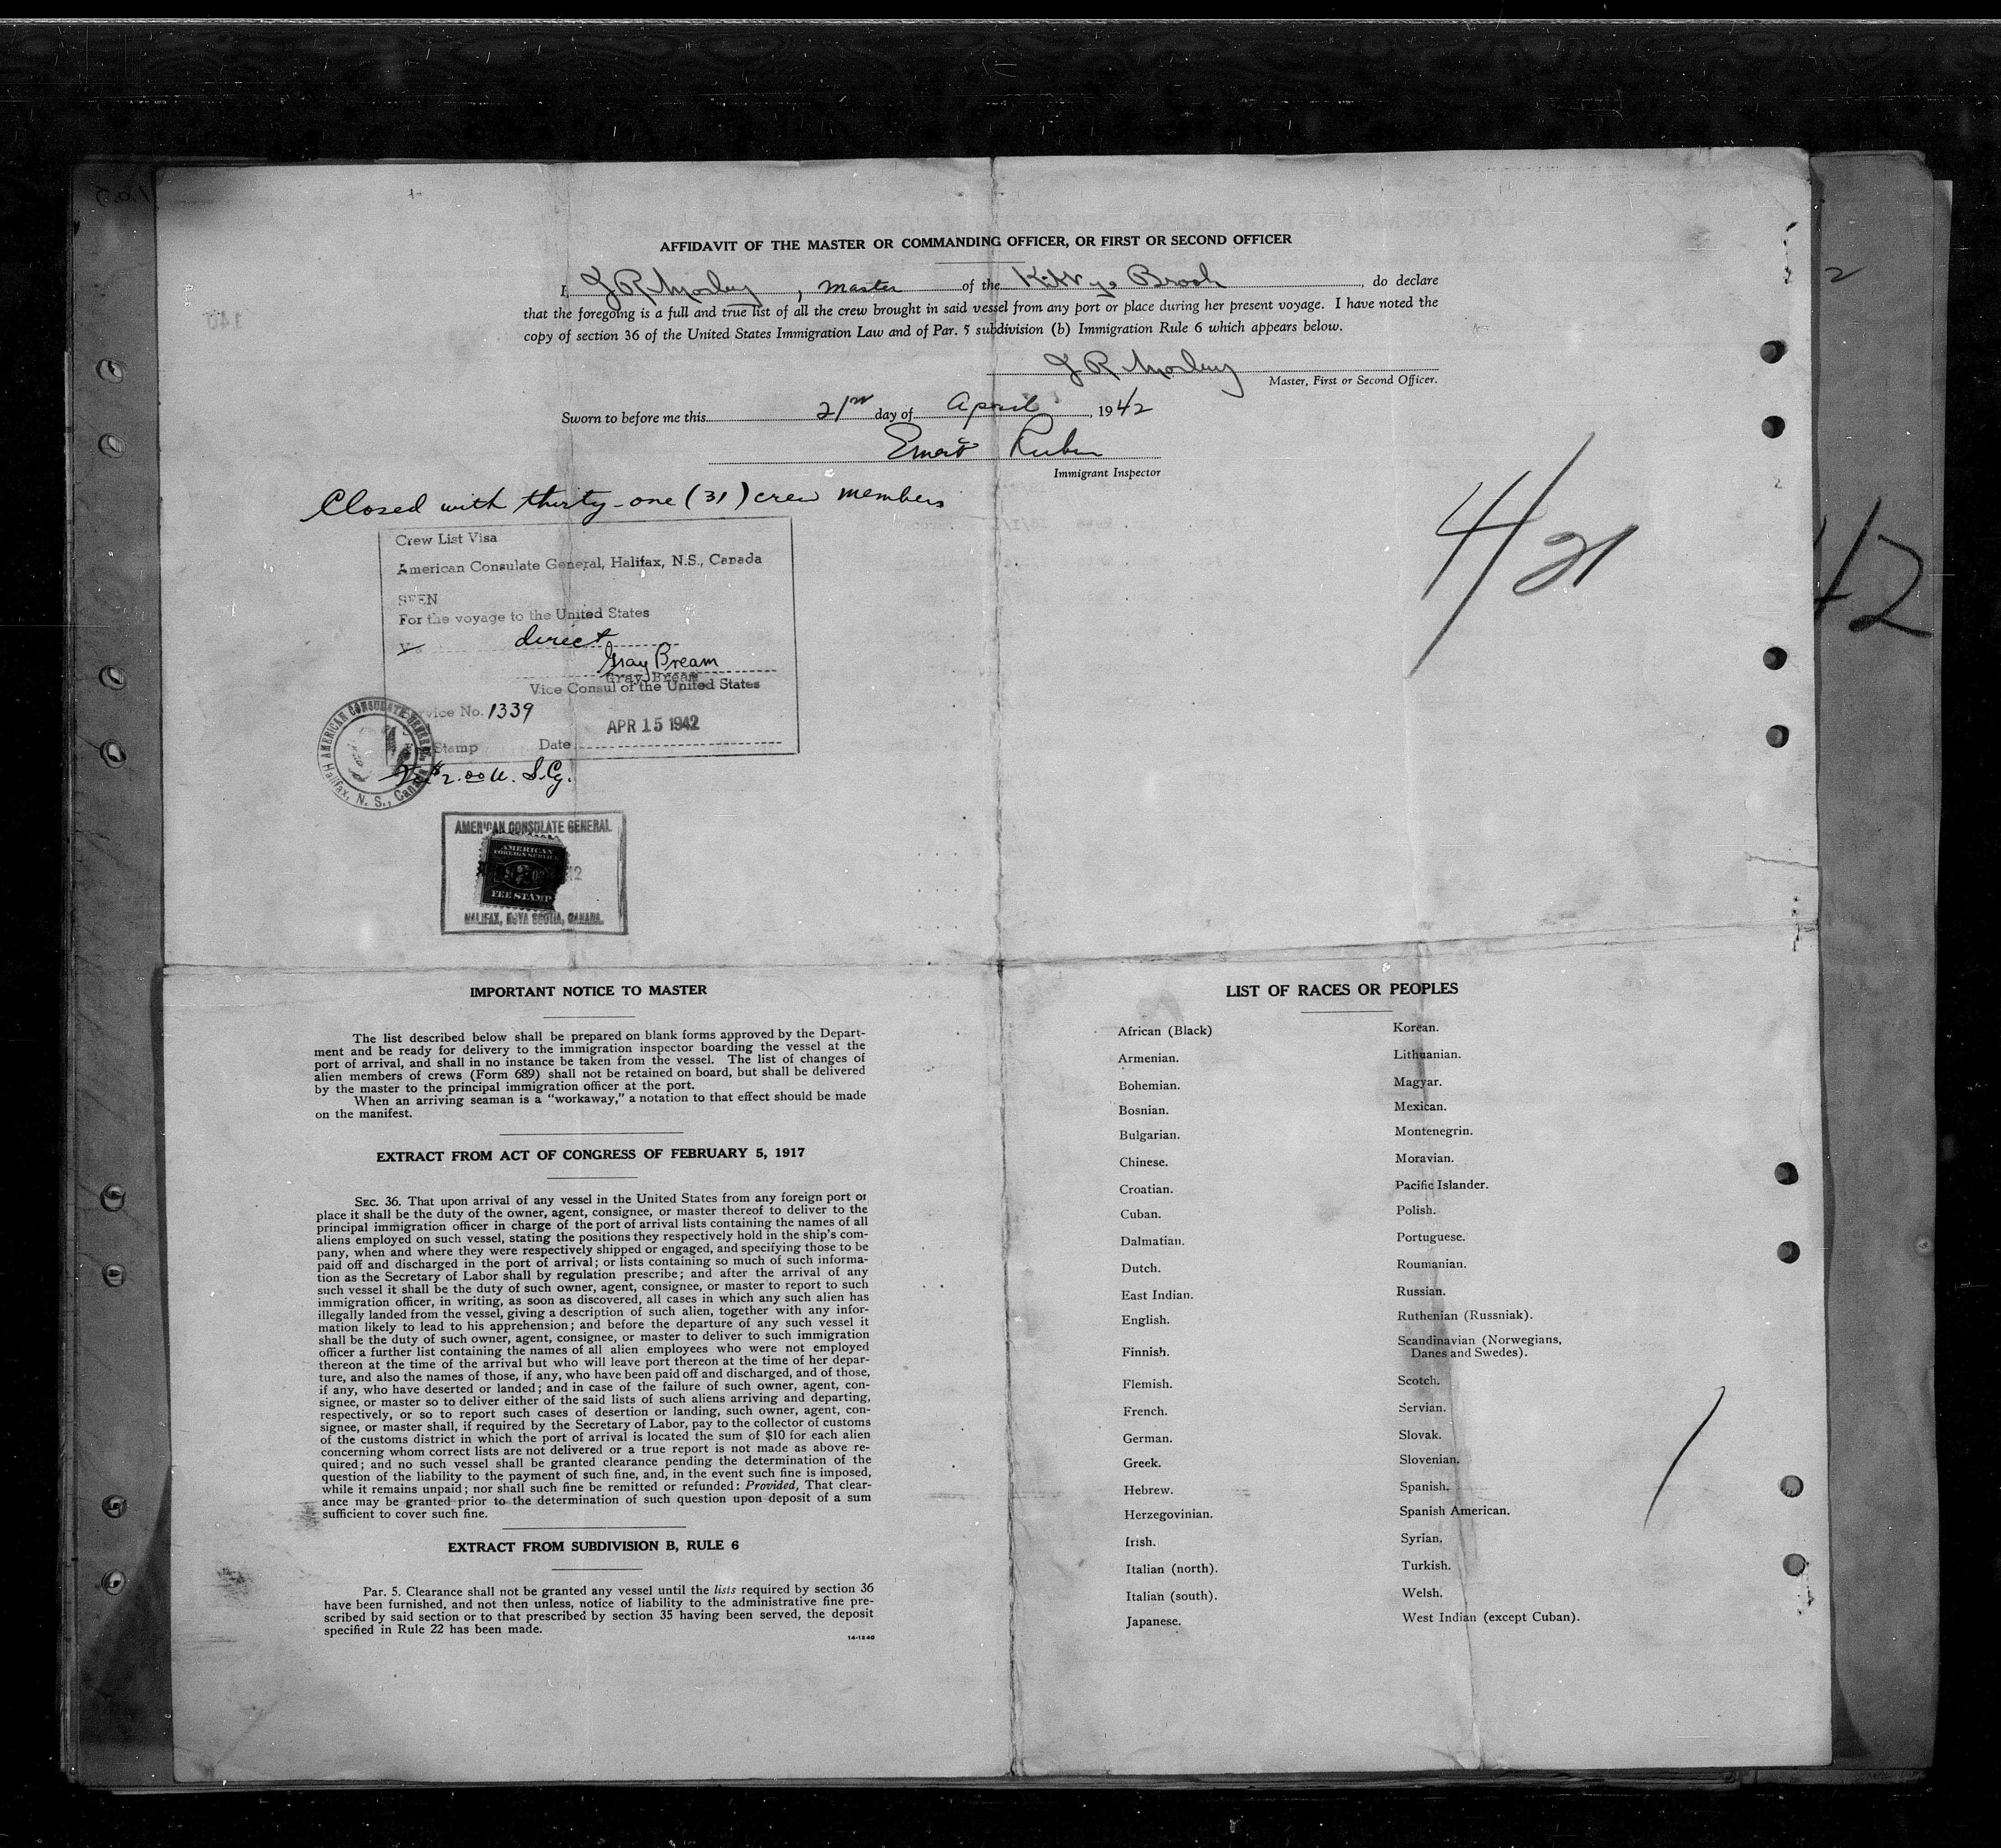 AFFIDAVIT OF THE MASTER OR COMMANDING OFFICER, OR FIRST OR SECOND OFFICER
I, J R Morley, master of the Kitty's Brook, do declare
that the foregoing is a full and true list of all the crew brought in said vessel from any port or place during her present voyage. I have noted the
copy of section 36 of the United States Immigration Law and of Par. 5 subdivision (b) Immigration Rule 6 which appears below.
J R Morley
Master, First or Second Officer.
Sworn to before me this 21st day of April, 1942
Ernest Rubin
Immigrant Inspector
Closed with thirty-one (31) crew members
4/21
42
2
Crew List Visa
American Consulate General, Halifax, N.S., Canada
SEEN
For the voyage to the United States
Via direct
Gray Bream
Gray Bream
Vice Consul of the United States
Service No. 1339
Stamp Date APR 15 1942
$2.00 U.S.Cy.
AMERICAN CONSULATE GENERAL
Halifax, N. S., Canada
AMERICAN CONSULATE GENERAL
AMERICAN
FOREIGN SERVICE
FEE STAMP
HALIFAX, NOVA SCOTIA, CANADA.
IMPORTANT NOTICE TO MASTER
The list described below shall be prepared on blank forms approved by the Depart-
ment and be ready for delivery to the immigration inspector boarding the vessel at the
port of arrival, and shall in no instance be taken from the vessel. The list of changes of
alien members of crews (Form 689) shall not be retained on board, but shall be delivered
by the master to the principal immigration officer at the port.
When an arriving seaman is a "workaway," a notation to that effect should be made
on the manifest.
EXTRACT FROM ACT OF CONGRESS OF FEBRUARY 5, 1917
SEC. 36. That upon arrival of any vessel in the United States from any foreign port or
place it shall be the duty of the owner, agent, consignee, or master thereof to deliver to the
principal immigration officer in charge of the port of arrival lists containing the names of all
aliens employed on such vessel, stating the positions they respectively hold in the ship's com-
pany, when and where they were respectively shipped or engaged, and specifying those to be
paid off and discharged in the port of arrival; or lists containing so much of such informa-
tion as the Secretary of Labor shall by regulation prescribe; and after the arrival of any
such vessel it shall be the duty of such owner, agent, consignee, or master to report to such
immigration officer, in writing, as soon as discovered, all cases in which any such alien has
illegally landed from the vessel, giving a description of such alien, together with any infor-
mation likely to lead to his apprehension; and before the departure of any such vessel it
shall be the duty of such owner, agent, consignee, or master to deliver to such immigration
officer a further list containing the names of all alien employees who were not employed
thereon at the time of the arrival but who will leave port thereon at the time of her depar-
ture, and also the names of those, if any, who have been paid off and discharged, and of those,
if any, who have deserted or landed; and in case of the failure of such owner, agent, con-
signee, or master so to deliver either of the said lists of such aliens arriving and departing,
respectively, or so to report such cases of desertion or landing, such owner, agent, con-
signee, or master shall, if required by the Secretary of Labor, pay to the collector of customs
of the customs district in which the port of arrival is located the sum of $10 for each alien
concerning whom correct lists are not delivered or a true report is not made as above re-
quired; and no such vessel shall be granted clearance pending the determination of the
question of the liability to the payment of such fine, and, in the event such fine is imposed,
while it remains unpaid; nor shall such fine be remitted or refunded: Provided, That clear-
ance may be granted prior to the determination of such question upon deposit of a sum
sufficient to cover such fine.
EXTRACT FROM SUBDIVISION B, RULE 6
Par. 5. Clearance shall not be granted any vessel until the lists required by section 36
have been furnished, and not then unless, notice of liability to the administrative fine pre-
scribed by said section or to that prescribed by section 35 having been served, the deposit
specified in Rule 22 has been made.
14-1240
LIST OF RACES OR PEOPLES
African (Black)
Armenian.
Bohemian.
Bosnian.
Bulgarian.
Chinese.
Croatian.
Cuban.
Dalmatian.
Dutch.
East Indian.
English.
Finnish.
Flemish.
French.
German.
Greek.
Hebrew.
Herzegovinian.
Irish.
Italian (north).
Italian (south).
Japanese.
Korean.
Lithuanian.
Magyar.
Mexican.
Montenegrin.
Moravian.
Pacific Islander.
Polish.
Portuguese.
Roumanian.
Russian.
Ruthenian (Russniak).
Scandinavian (Norwegians,
Danes and Swedes).
Scotch.
Servian.
Slovak.
Slovenian.
Spanish.
Spanish American.
Syrian.
Turkish.
Welsh.
West Indian (except Cuban).